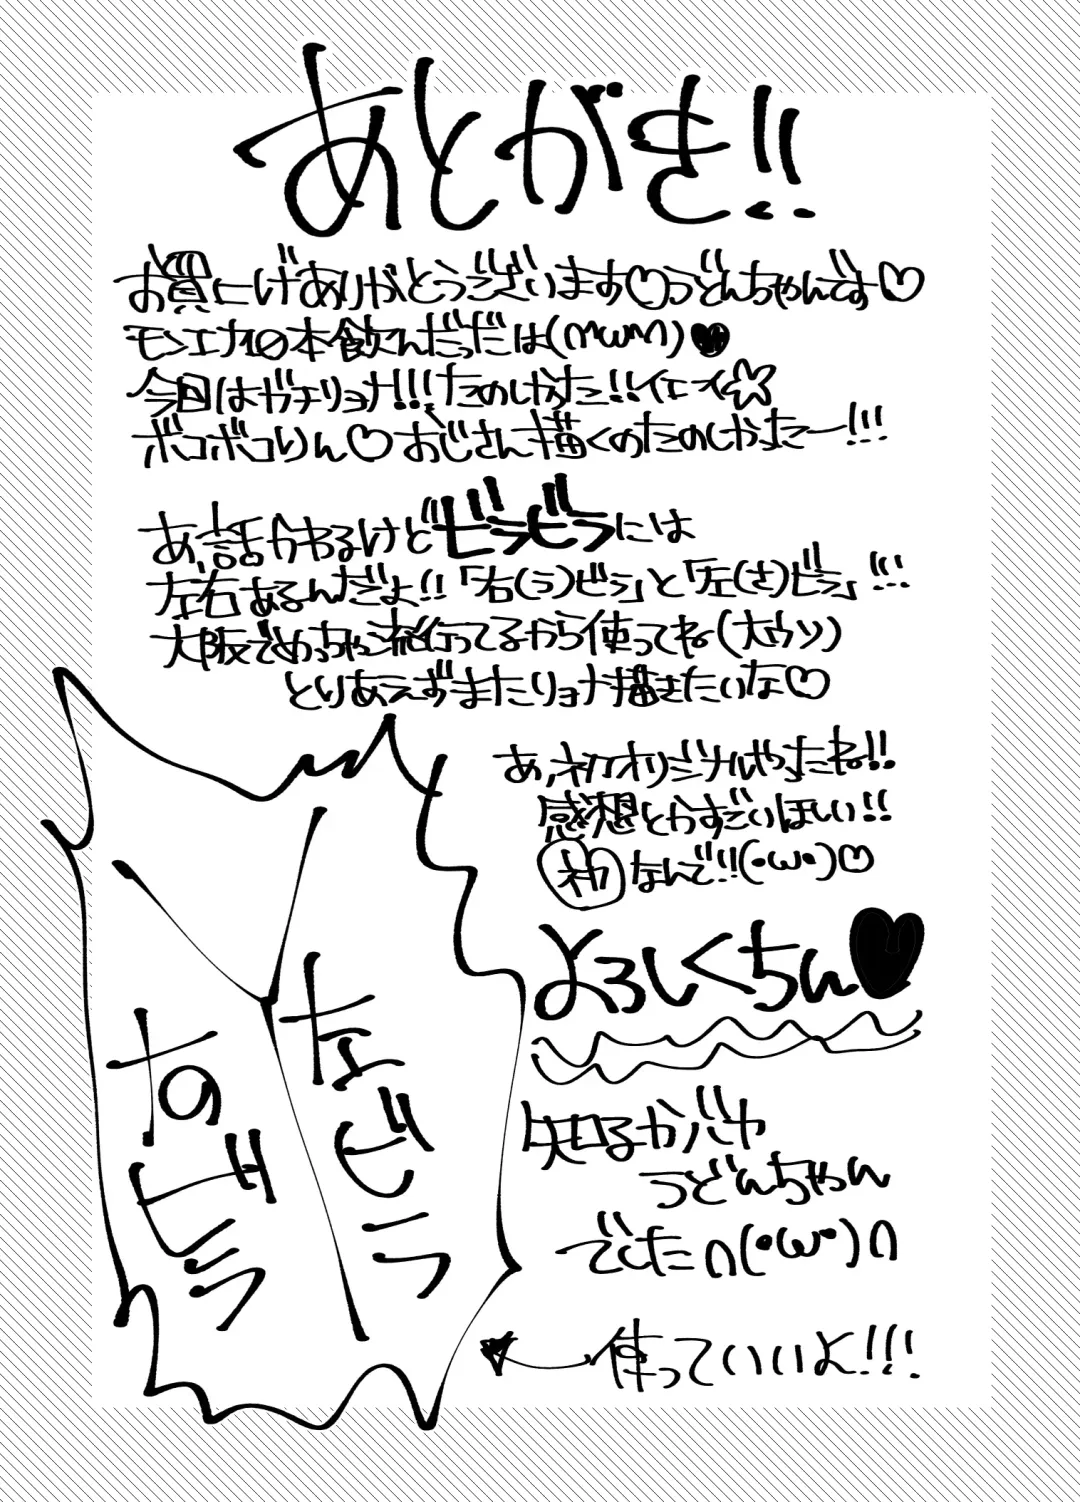 あとがき!!
お買上げありがとうございます♡うどんちゃんです♡
モンエナの本飲んだっだは(mωm)♥
今回はガチリョナ!!!たのしかた!!イェーイ☆
ボコボコりん♡おじさん描くのたのしかったー!!!
あ、話かわるけどビラビラには
左右あるんだよ!!「右(う)ビラ」と「左(さ)ビラ」!!!
大阪でめっちゃ流行ってるから使ってね(大ウソ)
とりあえずまたリョナ描きたいな♡
あ、初オリジナルやったね!!
感想とかすごいほしい!!
初なんで!!(・ω・)♡
よろしくちん♥
知るかバカ
うどんちゃん
でしたn(・ω・)n
使っていいよ!!!
なビラ
すのビラ